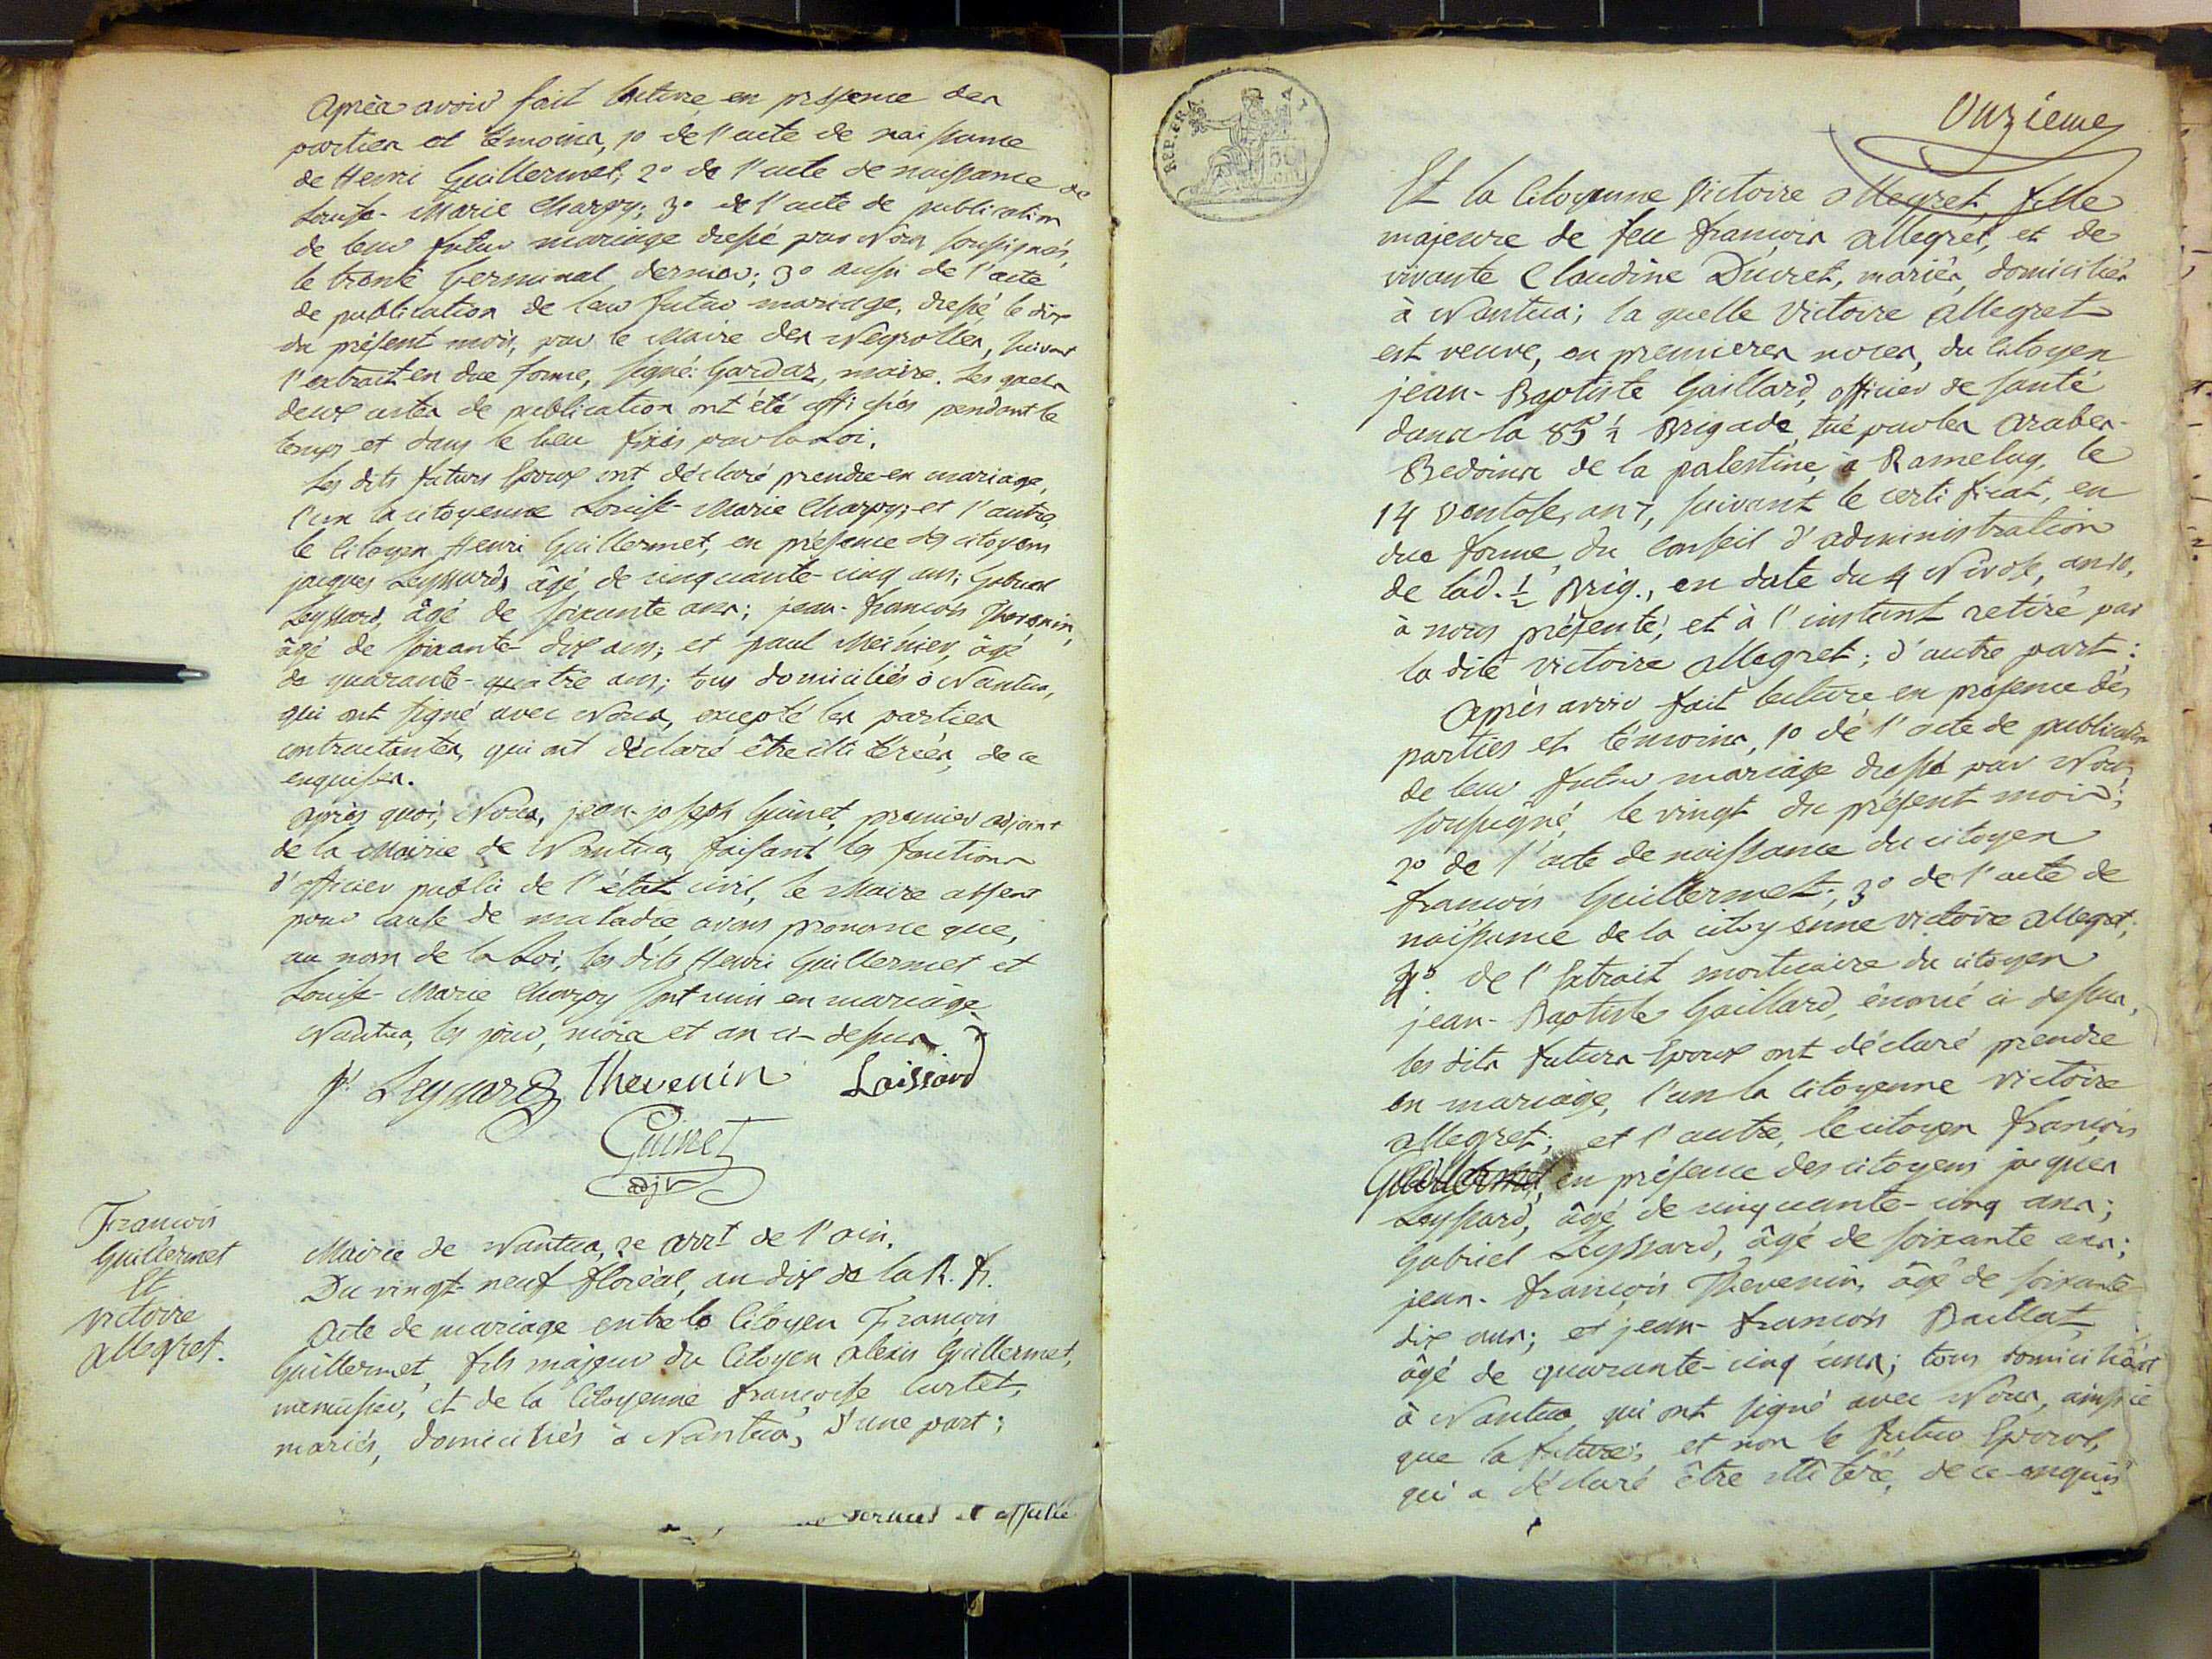 Après avoir fait lecture en présence des
parties et témoins, 1º de l'acte de naissance
de Henri Guillermet; 2º de l'acte de naissance de
Louise-Marie Charpy; 3º de l'acte de publication
de leur futur mariage dressé par Nous soussignés,
le trente Germinal dernier; 3º aussi de l'acte
de publication de leur futur mariage, dressé le dix
du présent mois, par le Maire des Neyrolles, suivant
l'extrait en due forme, signé: Gardaz, maire. Les quels
deux actes de publication ont été affichés pendant le
temps et dans le lieu fixés par la Loi.
Les dits futurs Epoux ont déclaré prendre en mariage,
l'un la citoyenne Louise-Marie Charpy; et l'autre,
le Citoyen Henri Guillermet, en présence des citoyens
jacques Leyssard, âgé de cinquante-cinq ans; Gabriel
Leyssard, âgé de soixante ans; jean-francois Thevenin,
âgé de soixante-dix ans; et paul Meinier, âgé
de quarante-quatre ans; tous domiciliés à Nantua,
qui ont signé avec Nous, excepté les parties
contractantes, qui ont déclaré être illitérées, de ce
enquises.
Après quoi, Nous, jean-joseph Guinet, premier adjoint
de la Mairie de Nantua, faisant les fonctions
d'officier public de l'état civil, le Maire absent
pour cause de maladie, avons prononcé que,
au nom de la Loi, les dits Henri Guillermet et
Louise-Marie Charpy sont unis en mariage.
Nantua, les jour, mois et an ci-dessus
Leyssard Thevenin Laissard
Guinet
adjt
Francois
Guillermet
Et
victoire
allegret.
Mairie de Nantua, 2e arrt de l'ain.
Du vingt-neuf floréal, an dix de la R. fr.
Acte de mariage entre le Citoyen François
Guillermet, fils majeur du Citoyen alexis Guillermet,
menuisier, et de la Citoyenne françoise Curtet,
mariés, domiciliés à Nantua, d'une part;
Onzieme
Et la Citoyenne Victoire Allegret, fille
majeure de feu francois allegret, et de
vivante Claudine Ducret, mariés, domiciliés
à Nantua; la quelle Victoire allegret
est veuve, en premieres noces, du Citoyen
jean-Baptiste Gaillard, officier de santé
dans la 85e ½ Brigade, tué par les arabes-
Bedoins de la palestine, à Rameluq, le
14 ventose, an 7, suivant le certificat, en
due forme, du Conseil d'administration
de lad. ½ Brig., en date du 4 Nivose, an 10,
à nous présenté, et à l'instant retiré par
la dite victoire allegret; d'autre part;
Après avoir fait lecture, en présence des
parties et témoins, 1º de l'acte de publication
de leur futur mariage dressé par Nous,
soussigné, le vingt du présent mois;
2º de l'acte de naissance du citoyen
francois Guillermet; 3º de l'acte de
naissance de la citoyenne victoire allegret;
4º de l'Extrait mortuaire du citoyen
jean-Baptiste Gaillard, énoncé ci dessus,
les dits futurs Epoux ont déclaré prendre
en mariage, l'un la citoyenne victoire
allegret; et l'autre, le citoyen françois
Guillermet, en présence des citoyens jacques
Leyssard, âgé de cinquante-cinq ans;
Gabriel Leyssard, âgé de soixante ans;
jean-françois Thevenin, âgé de soixante-
dix ans; et jean-francois Baillat,
âgé de quarante-cinq ans; tous domiciliés
à Nantua, qui ont signé avec Nous, ainsi
que la future, et non le futur Epoux,
qui a déclaré être illitéré, de ce enquis
REP. FRA.